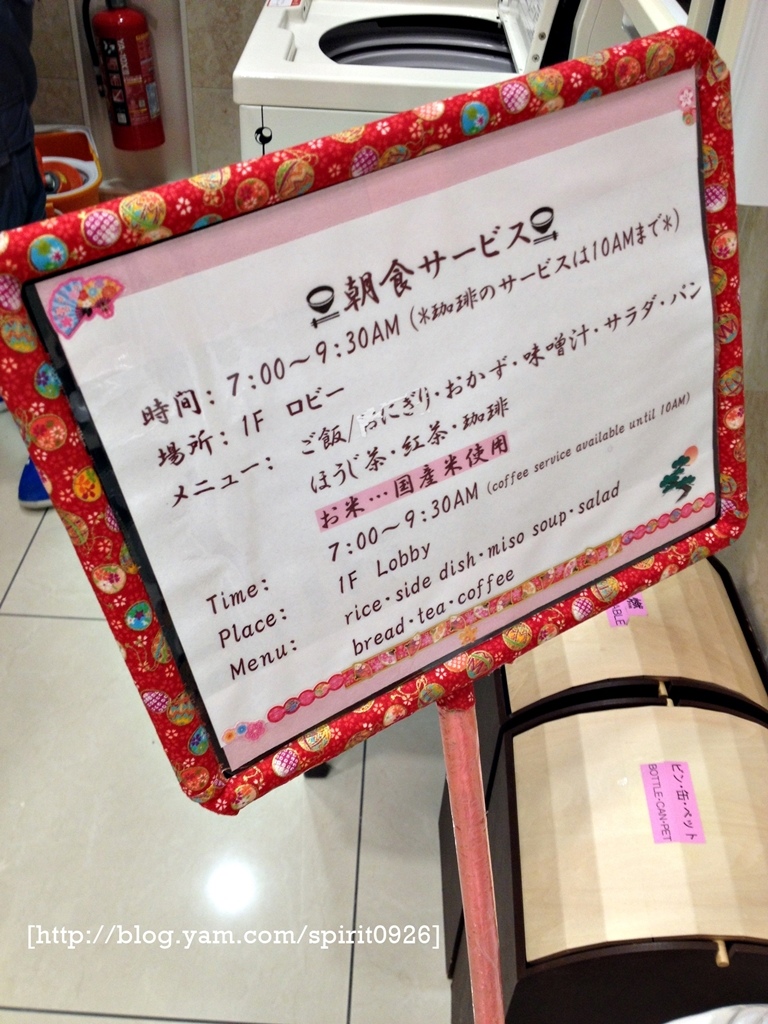 朝食サービス
時間: 7:00～9:30AM (*珈琲のサービスは10AMまで*)
場所: 1F ロビー
メニュー: ご飯/おにぎり・おかず・味噌汁・サラダ・パン
ほうじ茶・紅茶・珈琲
お米…国産米使用
Time: 7:00～9:30AM (coffee service available until 10AM)
Place: 1F Lobby
Menu: rice・side dish・miso soup・salad
bread・tea・coffee
ビン・缶・ペット
BOTTLE・CAN・PET
[http://blog.yam.com/spirit0926]